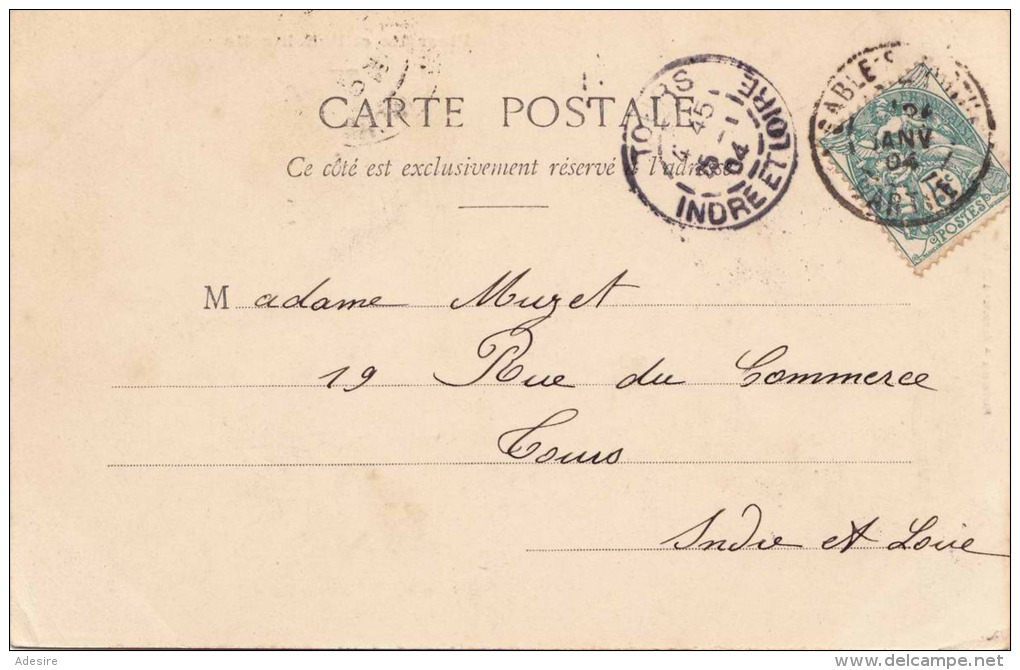 CARTE POSTALE
Ce côté est exclusivement réservé à l'adresse
TOURS
45
5 - 1
04
INDRE ET LOIRE
SABLE-S
JANV
04
SARTHE
POSTES
Madame Muzet
19 Rue du Commerce
Tours
Indre et Loire
Adesire
delcampe.net